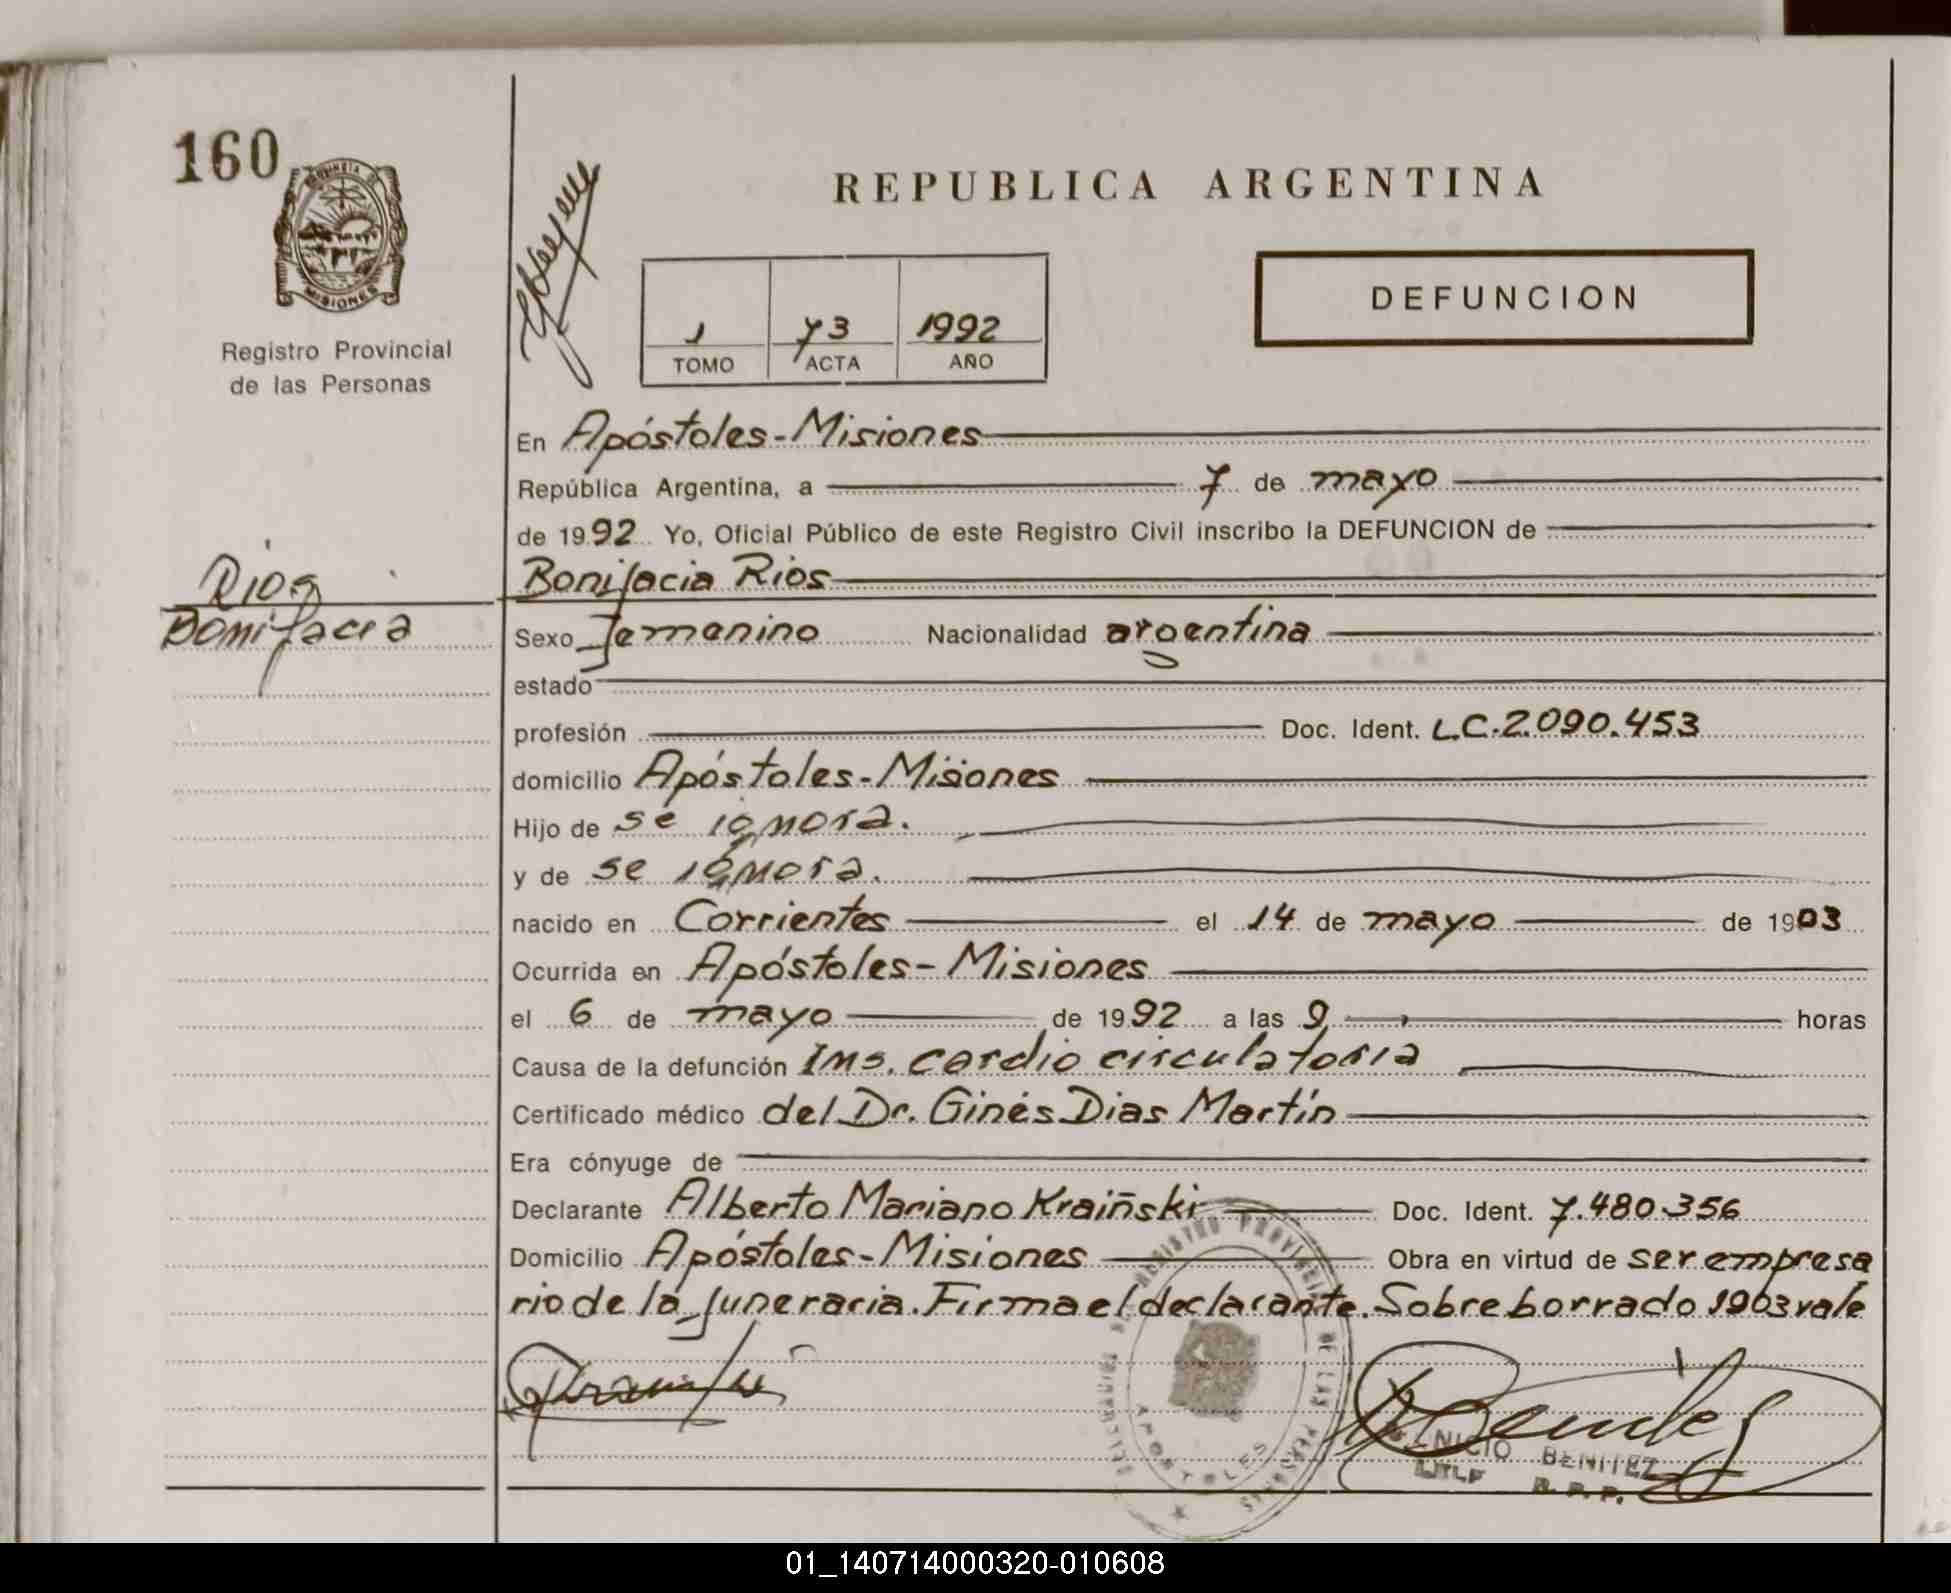 160
PROVINCIA D
MISIONES
Registro Provincial
de las Personas
REPUBLICA ARGENTINA
1 73 1992
TOMO ACTA AÑO
DEFUNCION
En Apóstoles-Misiones
República Argentina, a 7 de mayo
de 1992 Yo, Oficial Público de este Registro Civil inscribo la DEFUNCION de
Rios
Bonifacia Rios
Bonifacia
Sexo femenino Nacionalidad argentina
estado
profesión Doc. Ident. L.C.2.090.453
domicilio Apóstoles-Misiones
Hijo de se ignora.
y de se ignora.
nacido en Corrientes el 14 de mayo de 1903
Ocurrida en Apóstoles-Misiones
el 6 de mayo de 1992 a las 9 horas
Causa de la defunción Ins. cardio circulatoria
Certificado médico del Dr. Ginés Dias Martín
Era cónyuge de
Declarante Alberto Mariano Kraiñski Doc. Ident. 7.480.356
Domicilio Apóstoles-Misiones Obra en virtud de ser empresa
rio de la funeraria. Firma el declarante. Sobre borrado 1903 vale
REGISTRO PROVINCIAL DE LAS PERSONAS
APOSTOLES
BENITEZ
R. P. P.
01_140714000320-010608